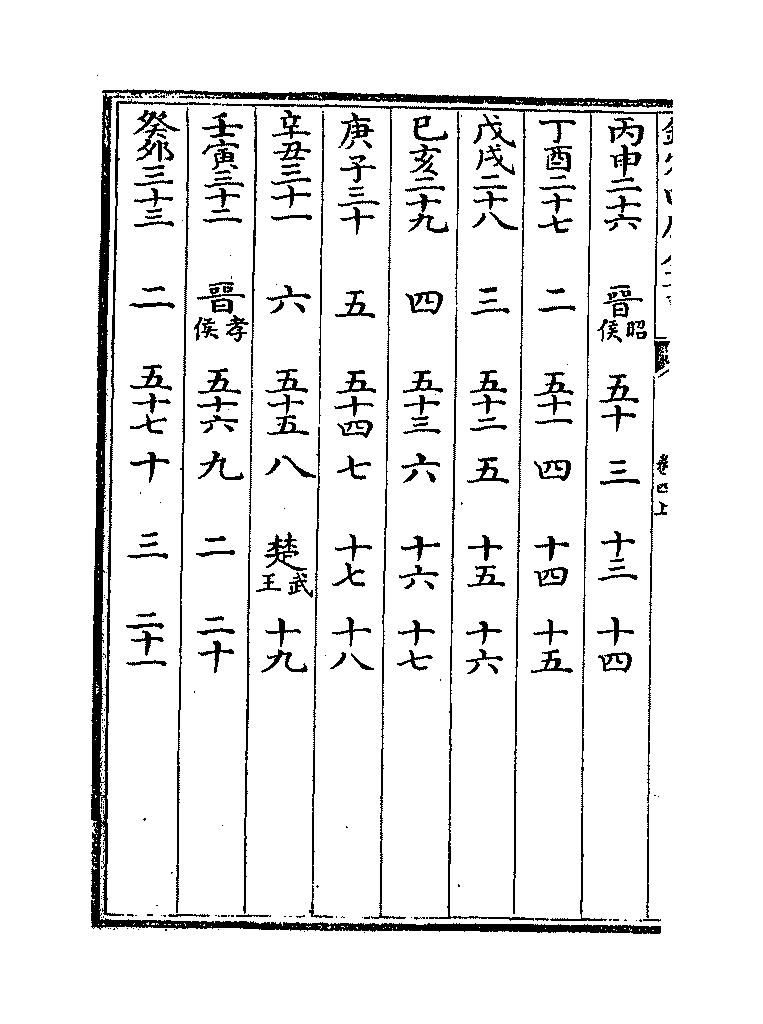 丙申二十六 晋昭侯 五十 三 十三 十四
丁酉二十七 二 五十一 四 十四 十五
戊戌二十八 三 五十二 五 十五 十六
己亥二十九 四 五十三 六 十六 十七
庚子三十 五 五十四 七 十七 十八
辛丑三十一 六 五十五 八 楚武王 十九
壬寅三十二 晋孝侯 五十六 九 二 二十
癸夘三十三 二 五十七 十 三 二十一
卷四上